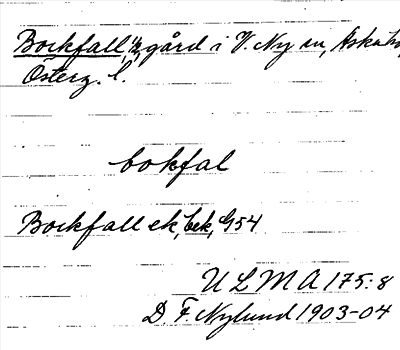 Bockfall, ½ gård i V. Ny sn, Aska h
Österg. l.
bokfal
Bockfall ek, bek, G54
ULMA 175:8
D F. Nylund 1903-04